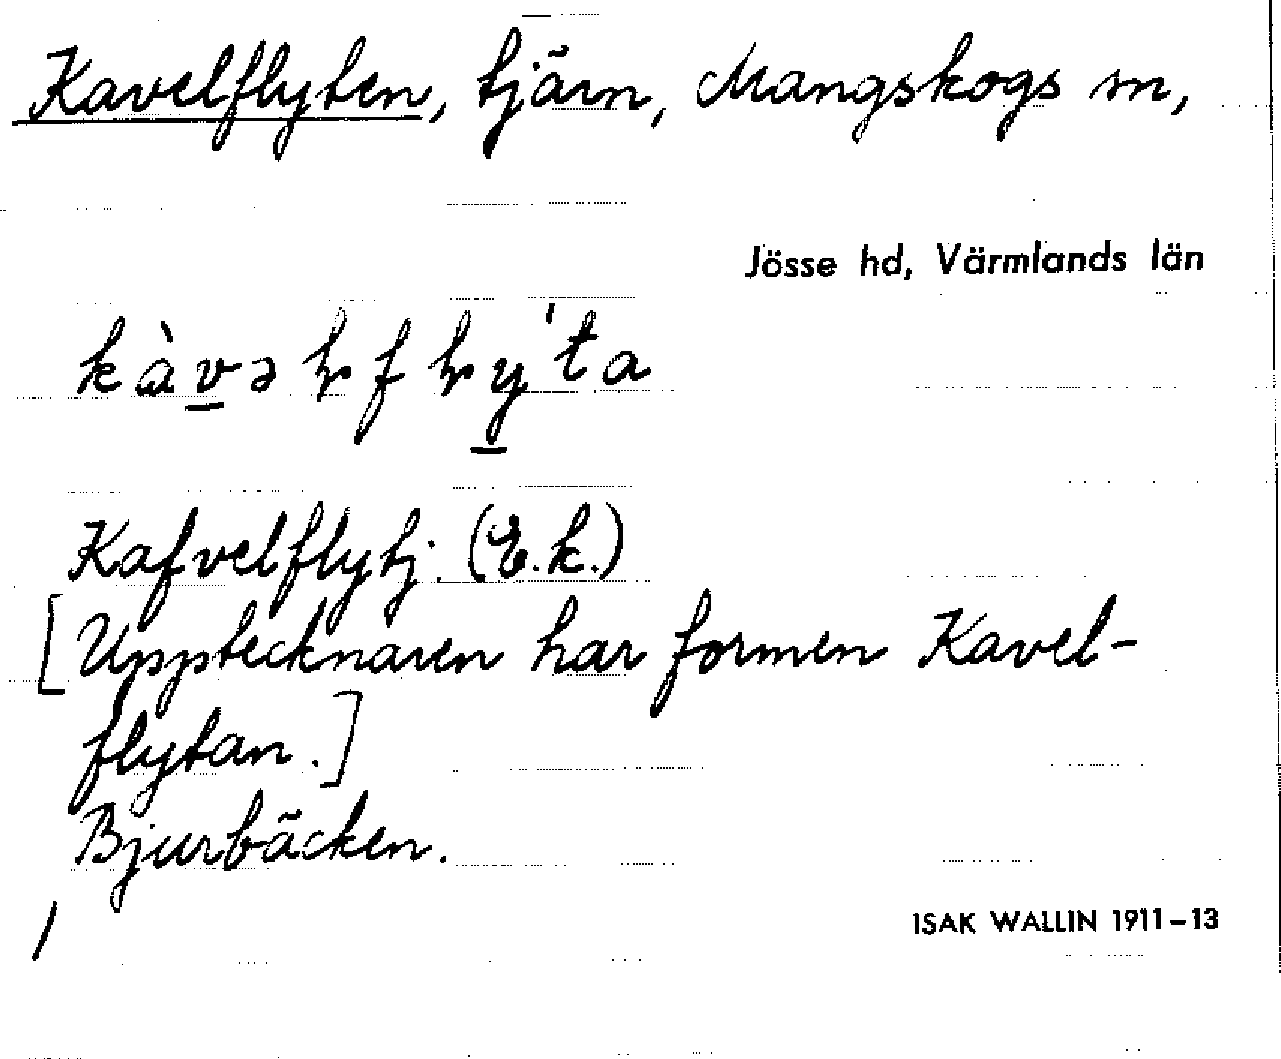 Kavelflyten, tjärn, Mangskogs sn,
Jösse hd, Värmlands län
Kafvelflytj. (E.k.)
[Upptecknaren har formen Kavel-
flytan.]
Bjurbäcken.
/
ISAK WALLIN 1911-13